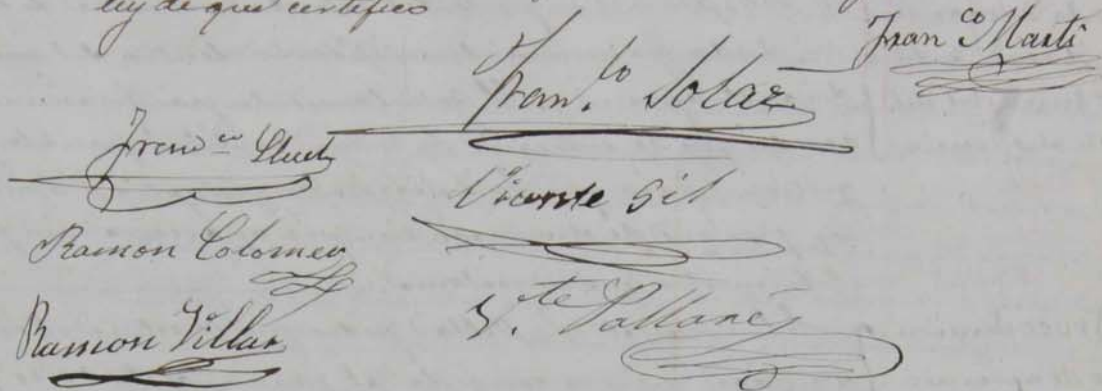 ley de que certifico
Fran.co Marti
Fran.co Solaz
Fran.co Lluch
Vicente Gil
Ramon Colomer
V.te Pallarés
Ramon Villar